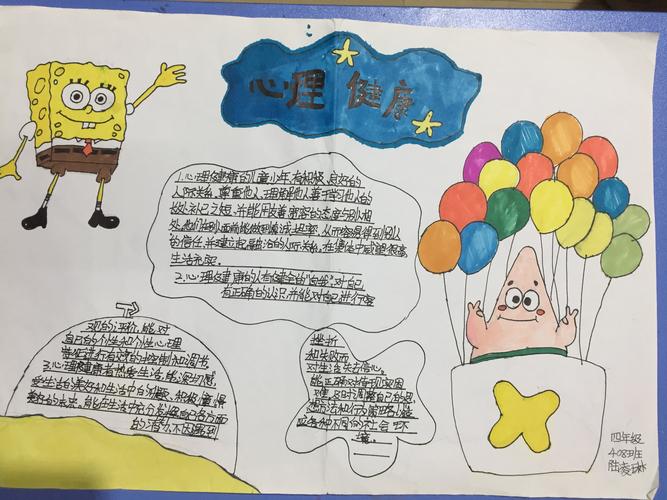 心理 健康
1.心理健康的儿童少年,有积极、良好的
人际关系。尊重他人,理解他人,善于学习他人的
长处补己之短,并能用友善、宽容的态度与别人相
处。他们在别人面前能做到真诚坦率,从而容易得到别人
的信任,并建立起融洽的人际关系,在集体中威望很高
生活充实。
2.心理健康的人有健全的"自我",对自己
有正确的认识,并能对自己进行客
观的评价,能对
自己的个性和个性心理
特征进行有效的控制和调节。
3.心理健康者热爱生活,能深切感
受生活的美好和生活中的乐趣,积极憧憬
美好的未来。能在生活中充分发挥自己各方面
的潜力,不因遇到
挫折
和失败而
对生活失去信心。
能正确对待现实困
难,及时调整自己的思
想方法和行为策略以适
应各种不同的社会环
境。
四年级
408班
陆凌